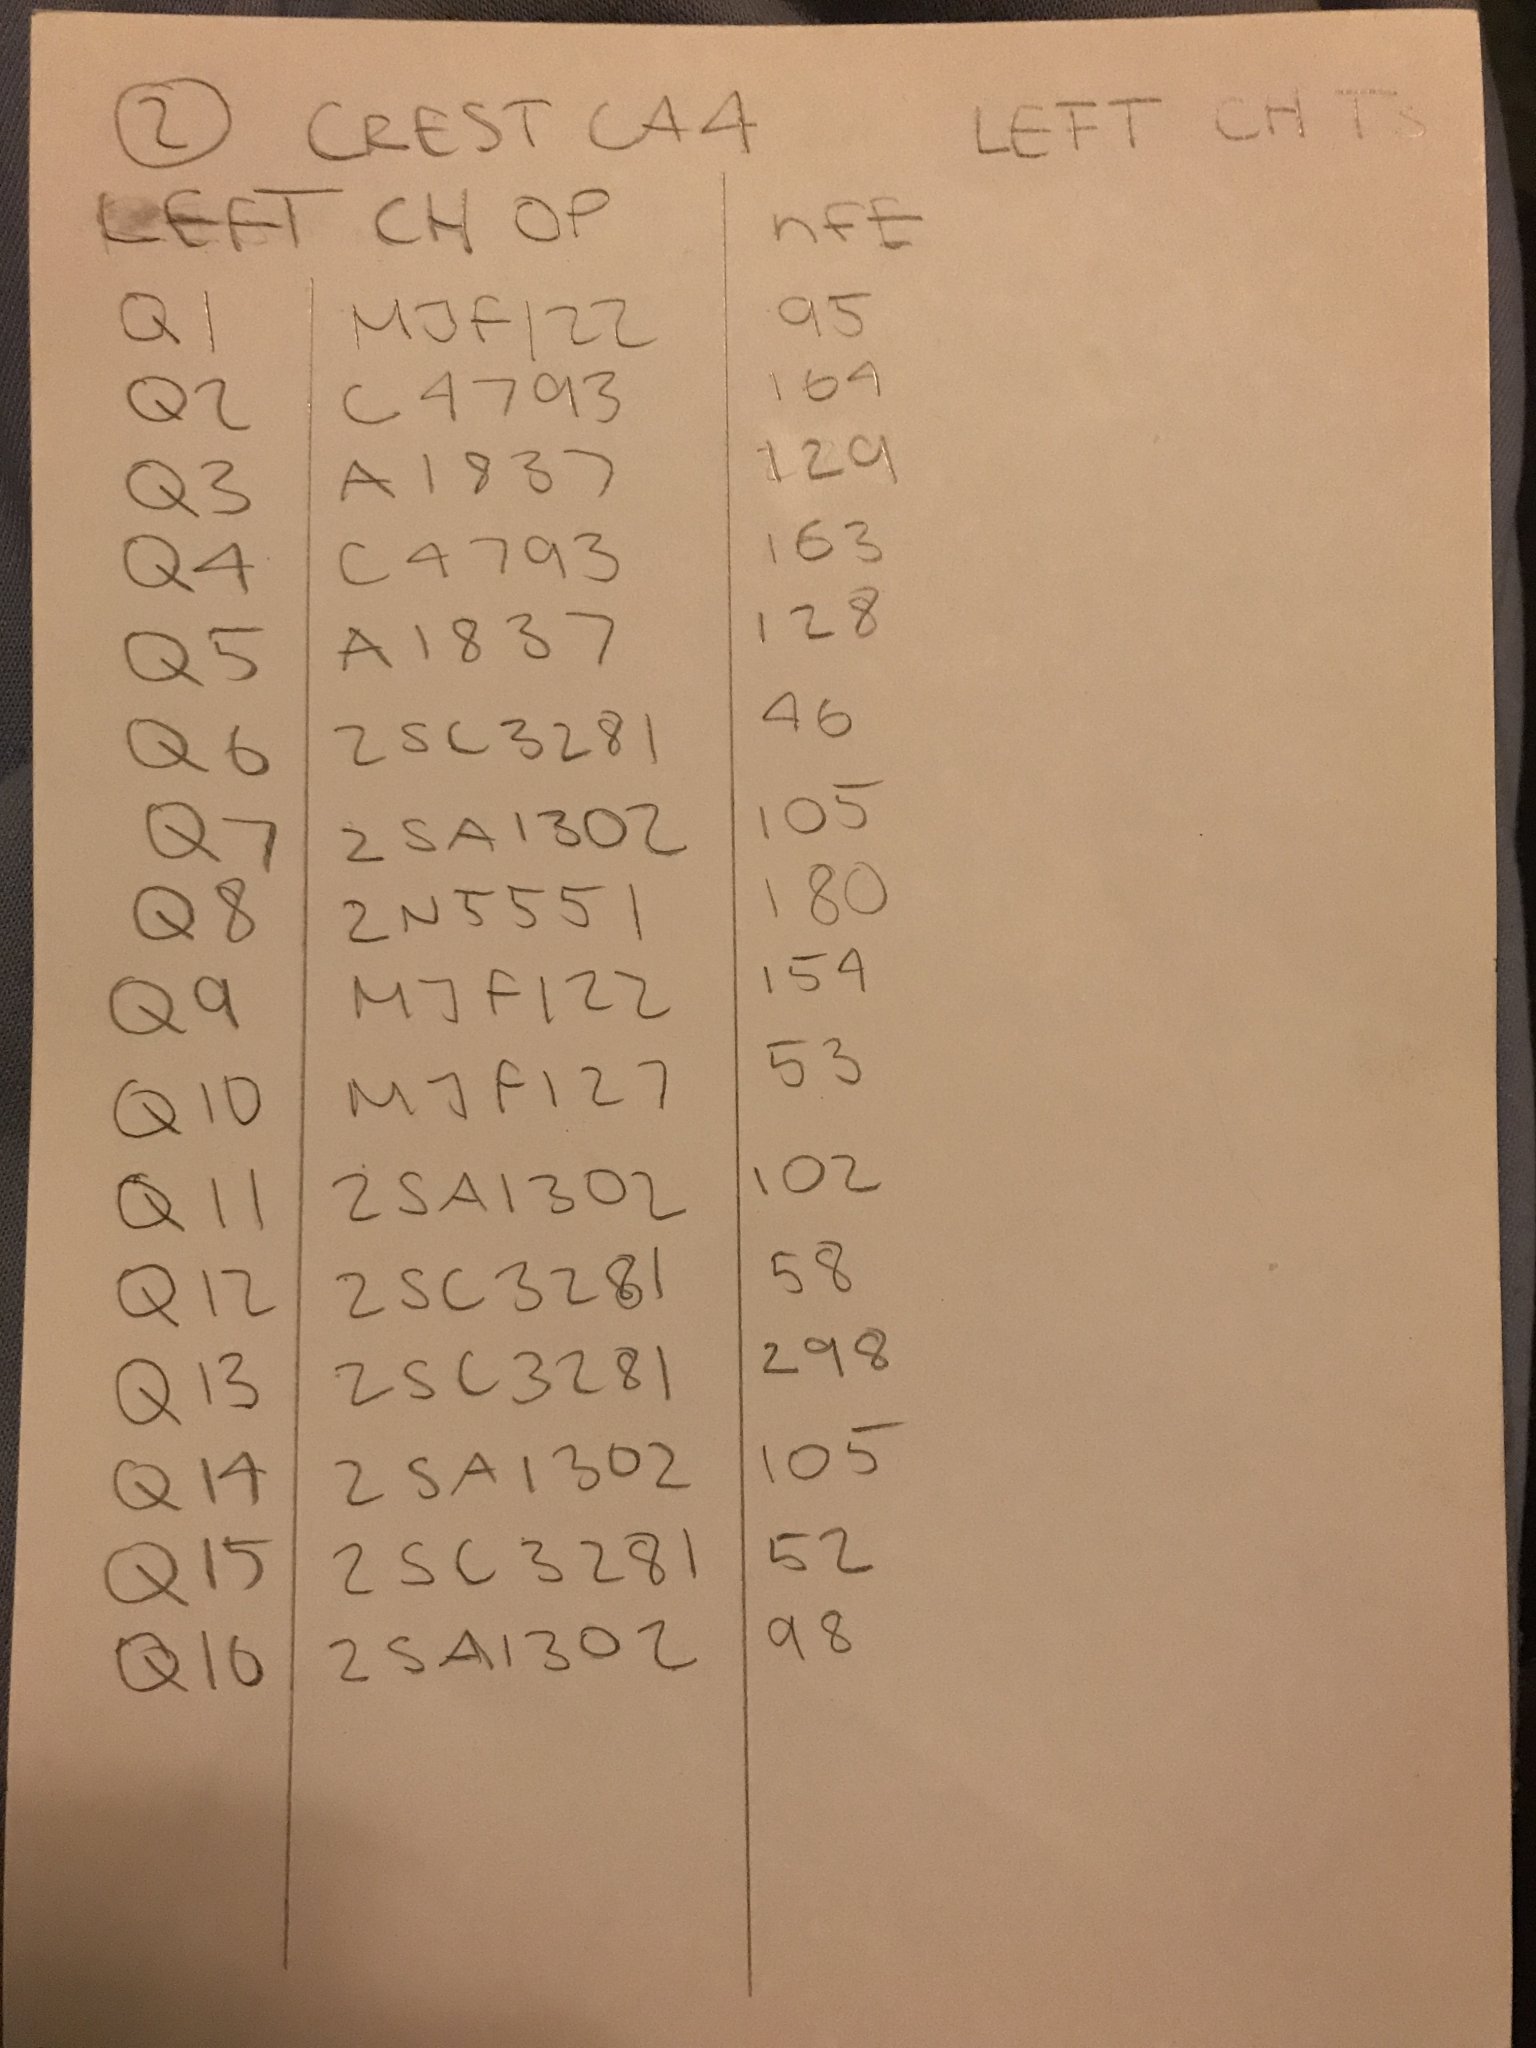 2 CREST CA4 LEFT CH TS
LEFT CH OP hFE
Q1 MJF122 95
Q2 C4793 164
Q3 A1837 129
Q4 C4793 163
Q5 A1837 128
Q6 2SC3281 46
Q7 2SA1302 105
Q8 2N5551 180
Q9 MJF122 154
Q10 MJF127 53
Q11 2SA1302 102
Q12 2SC3281 58
Q13 2SC3281 298
Q14 2SA1302 105
Q15 2SC3281 52
Q16 2SA1302 98